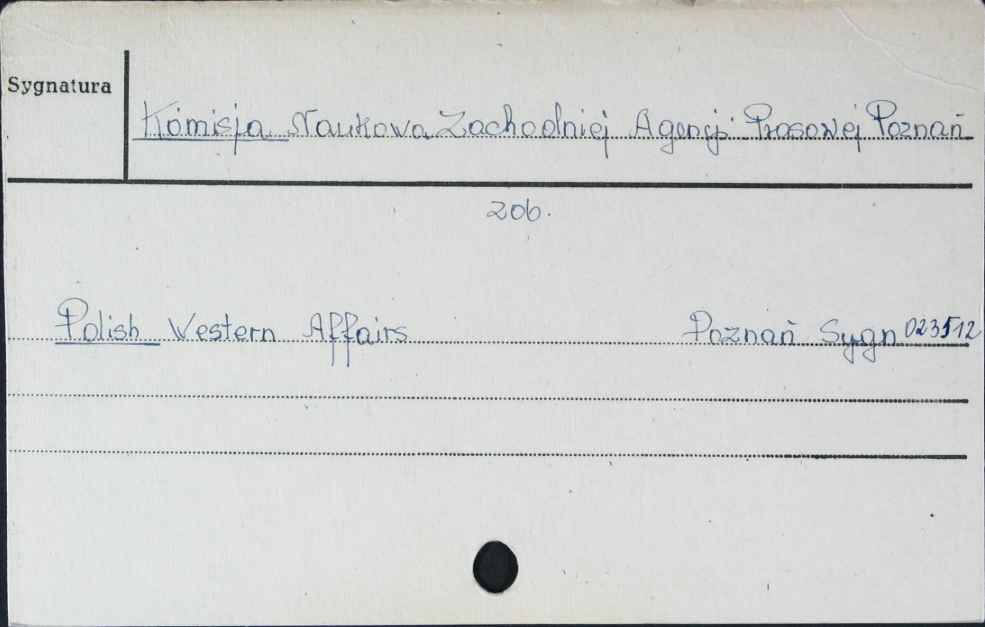 Sygnatura
Komisja Naukowa Zachodniej Agencji Prasowej Poznań
zob.
Polish Western Affairs Poznań Sygn 023512